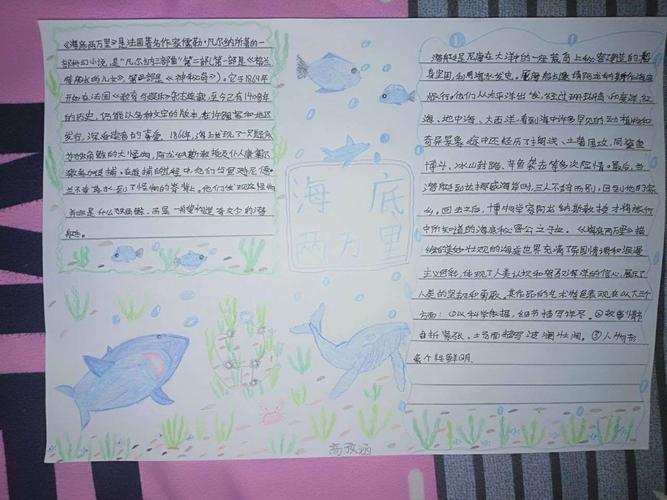 《海底两万里》是法国著名作家儒勒·凡尔纳所著的一
部科幻小说,是"凡尔纳三部曲"第二部(第一部是《格兰
特船长的儿女》第三部是《神秘岛》)。它于1869年
开始在法国《教育与娱乐》杂志连载,至今已有140多年
的历史,仍能以各种文字的版本在许多国家和地区
发行,深受读者的喜爱。1866年,海上发现了一只
大怪物,阿龙纳斯教授及仆人康塞尔
在追捕的过程中,他们与
怪物的脊背上。他们发现这怪物
并非是什么
艇。
海底
两万里
潜艇是尼摩在大洋中的一座荒岛上秘密建造的,船
身坚固,利用海水发电。尼摩船长邀请阿龙纳斯作海底
旅行。他们从太平洋出发,经过珊瑚岛、印度洋、红
海、地中海、大西洋,看到海中许多罕见的动植物和
奇异景象。途中还经历了搁浅、土著围攻、同鲨鱼
搏斗、冰山封路、章鱼袭击等多次险情。最后,当
潜艇到达挪威海岸时,三人不辞而别,回到他的家
乡。回去之后,博物学家阿龙纳斯教授才将旅行
中所知道的海底秘密公之于世。《海底两万里》描
绘的美妙壮观的海底世界充满了异国情调和浪漫
主义色彩,体现了人类认识和驾驭海洋的信心,展示了
人类的坚韧和勇敢。其作品的艺术特色表现在以下三个
方面:①以科学依据,细节描写详尽。②故事情节
曲折紧张,场面描写波澜壮阔。③人物形
象个性鲜明。